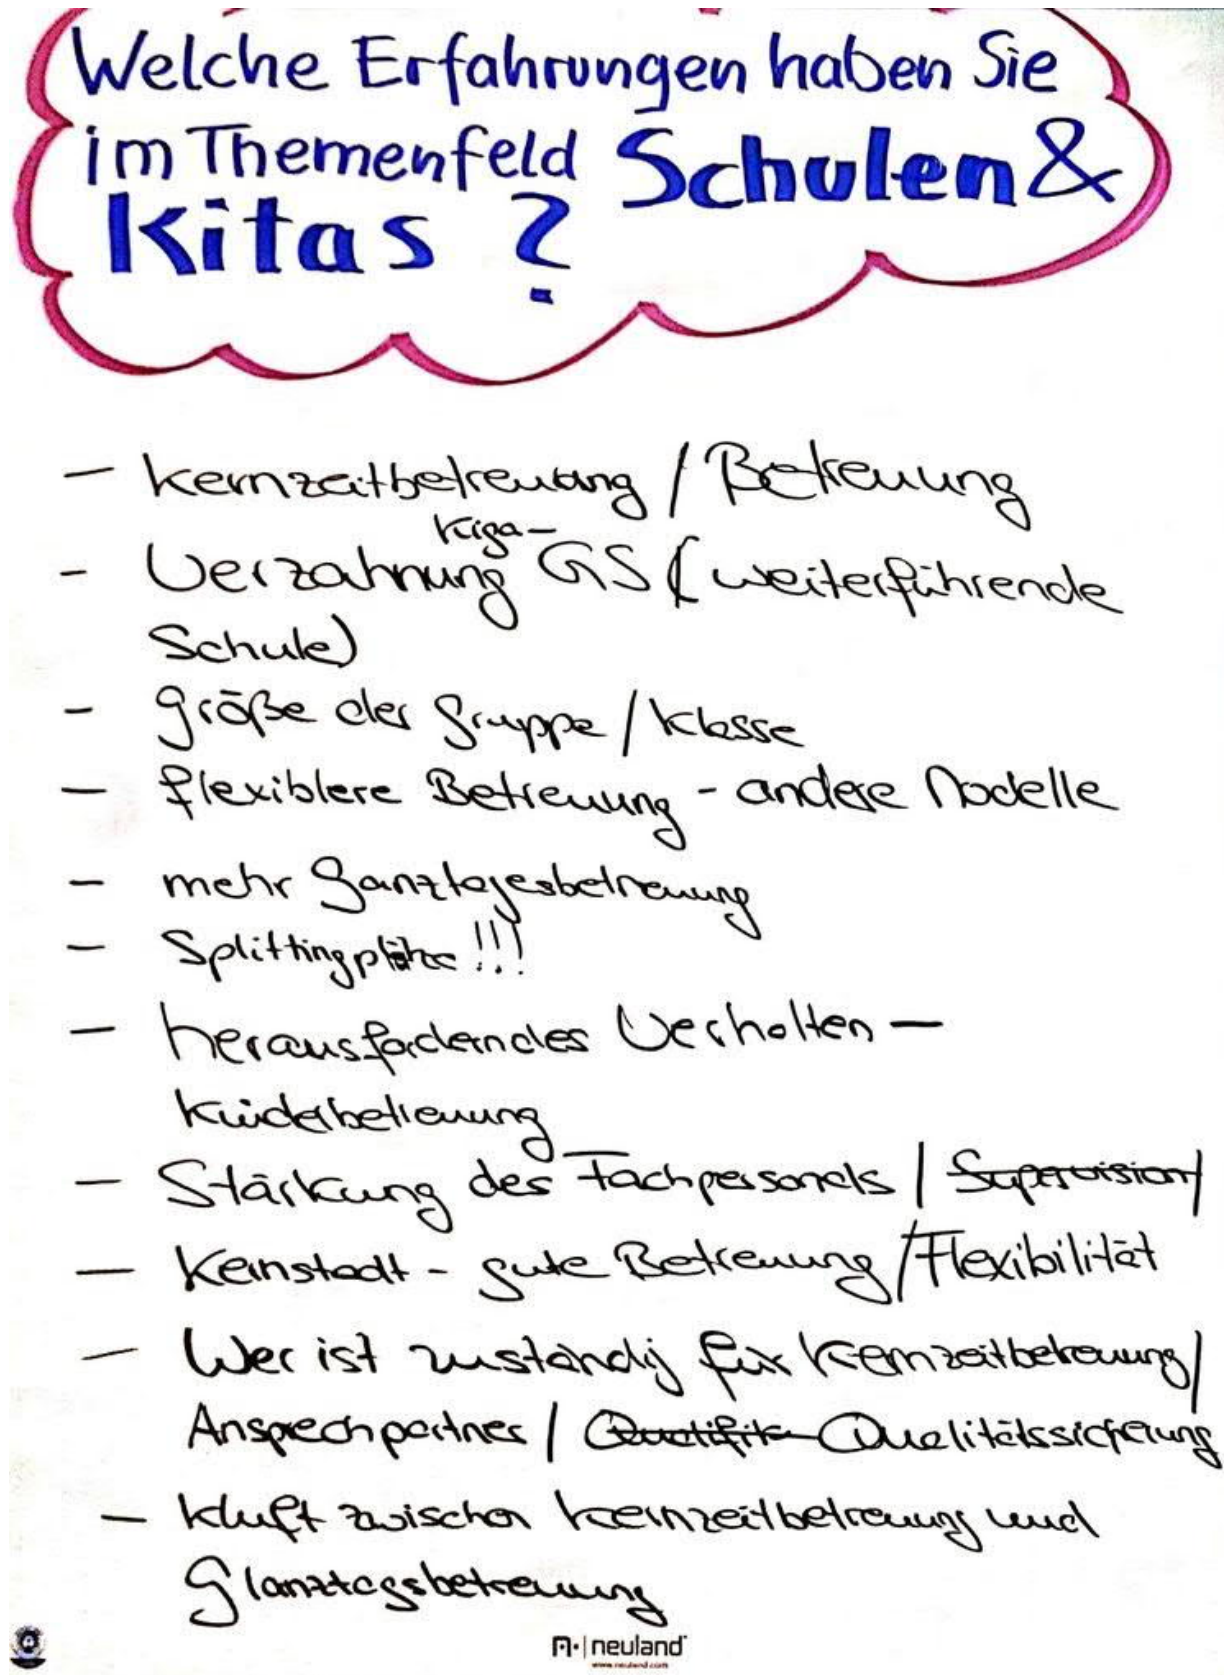 Welche Erfahrungen haben Sie
im Themenfeld Schulen &
Kitas ?
- Kernzeitbetreuung / Betreuung
Kiga-
- Verzahnung GS (weiterführende
Schule)
- größe der Gruppe / Klasse
- flexiblere Betreuung - andere Modelle
- mehr Ganztagesbetreuung
- Splittingplätze !!!
- herausforderndes Verhalten -
Kinderbetreuung
- Stärkung des Fachpersonals / Supervision /
- Kernstadt - gute Betreuung / Flexibilität
- Wer ist zuständig für Kernzeitbetreuung /
Ansprechpartner / Qualifik Qualitätssicherung
- Kluft zwischen Kernzeitbetreuung und
Glanztagsbetreuung
neuland
www.neuland.com